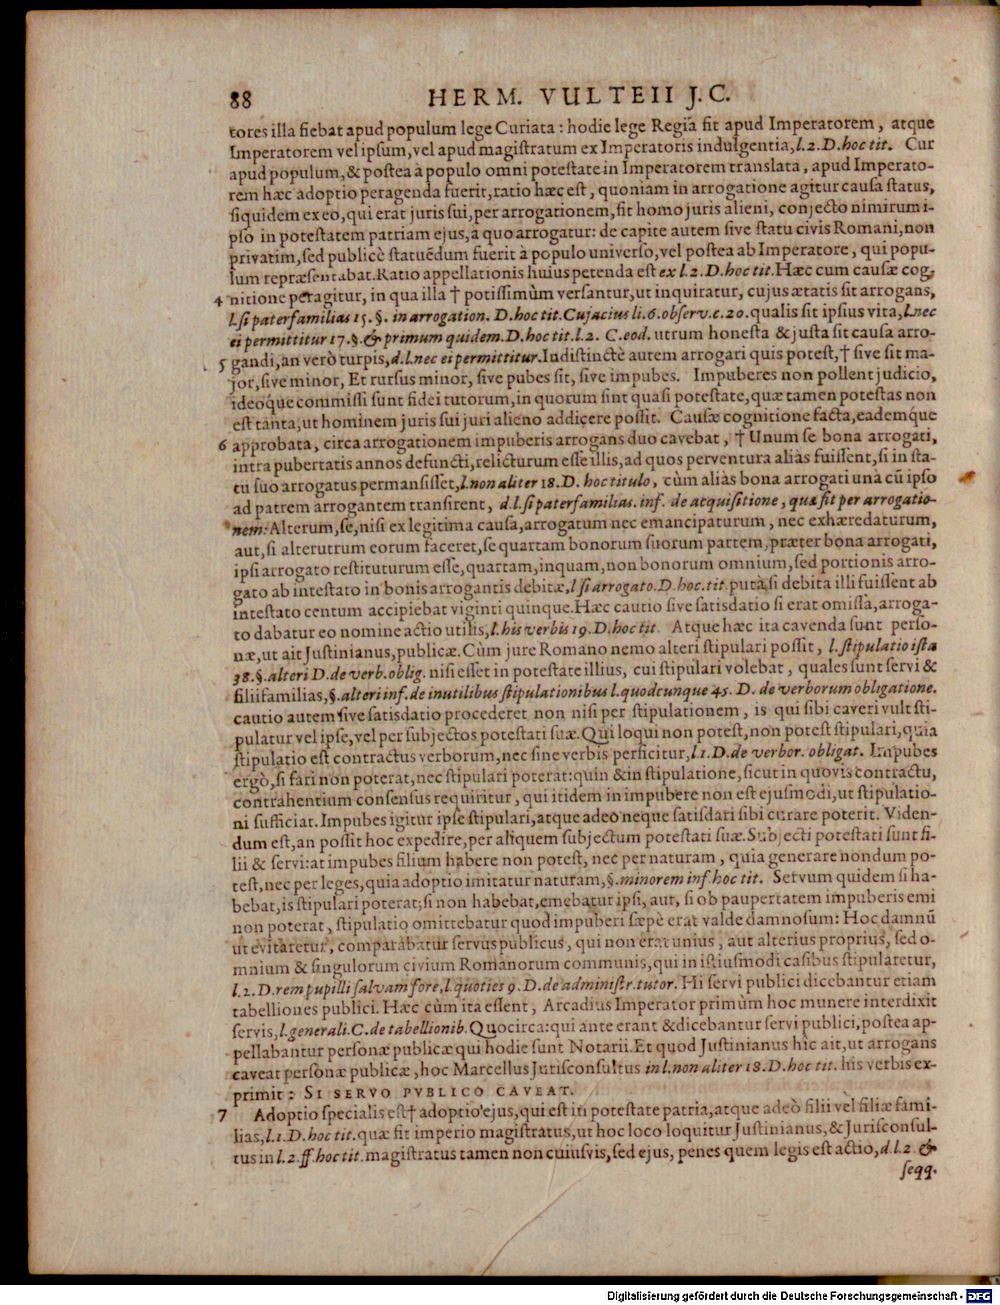 88 HERM. VULTEII J.C.
tores illa fiebat apud populum lege Curiata : hodie lege Regia fit apud Imperatorem, atque
Imperatorem vel ipſum, vel apud magiſtratum ex Imperatoris indulgentia, l. 2. D. hoc tit. Cur
apud populum, & poſtea à populo omni poteſtate in Imperatorem translata, apud Imperato-
rem hæc adoptio peragenda fuerit, ratio hæc eſt, quoniam in arrogatione agitur cauſa ſtatus,
ſiquidem ex eo, qui erat juris ſui, per arrogationem, fit homo juris alieni, conjecto nimirum i-
pſo in poteſtatem patriam ejus, à quo arrogatur: de capite autem ſive ſtatu civis Romani, non
privatim, ſed publicè ſtatuēdum fuerit à populo univerſo, vel poſtea ab Imperatore, qui popu-
lum repræſentabat. Ratio appellationis huius petenda eſt ex l. 2. D. hoc tit. Hæc cum cauſæ cog-
4 nitione peragitur, in qua illa † potiſſimùm verſantur, ut inquiratur, cujus ætatis ſit arrogans,
l. ſi paterfamilias 15. §. in arrogation. D. hoc tit. Cujacius li. 6. obſerv. c. 20. qualis ſit ipſius vita, l. nec
ei permittitur 17. §. & primum quidem. D. hoc tit. l. 2. C. eod. utrum honeſta & juſta ſit cauſa arro-
5 gandi, an verò turpis, d. l. nec ei permittitur. Indiſtinctè autem arrogari quis poteſt, † ſive ſit ma-
jor, ſive minor, Et rurſus minor, ſive pubes ſit, ſive impubes. Impuberes non pollent judicio,
ideoq́ue commiſſi ſunt fidei tutorum, in quorum ſint quaſi poteſtate, quæ tamen poteſtas non
eſt tanta, ut hominem juris ſui juri alieno addicere poſſit. Cauſæ cognitione facta, eademq́ue
6 approbata, circa arrogationem impuberis arrogans duo cavebat, † Unum ſe bona arrogati,
intra pubertatis annos defuncti, relicturum eſſe illis, ad quos perventura aliàs fuiſſent, ſi in ſta-
tu ſuo arrogatus permanſiſſet, l. non aliter 18. D. hoc titulo, cùm aliàs bona arrogati unà cū ipſo
ad patrem arrogantem tranſirent, d. l. ſi paterfamilias. inf. de acquiſitione, quæ fit per arrogatio-
nem: Alterum, ſe, niſi ex legitima cauſa, arrogatum nec emancipaturum, nec exhæredaturum,
aut, ſi alterutrum eorum faceret, ſe quartam bonorum ſuorum partem, præter bona arrogati,
ipſi arrogato reſtituturum eſſe, quartam, inquam, non bonorum omnium, ſed portionis arro-
gato ab inteſtato in bonis arrogantis debitæ, l. ſi arrogato. D. hoc. tit. putà, ſi debita illi fuiſſent ab
inteſtato centum accipiebat viginti quinque. Hæc cautio ſive ſatisdatio ſi erat omiſſa, arroga-
to dabatur eo nomine actio utilis, l. his verbis 19. D. hoc tit. Atque hæc ita cavenda ſunt perſo-
næ, ut ait Juſtinianus, publicæ. Cùm jure Romano nemo alteri ſtipulari poſſit, l. ſtipulatio iſta
38. §. alteri D. de verb. oblig. niſi eſſet in poteſtate illius, cui ſtipulari volebat, quales ſunt ſervi &
filiifamilias, §. alteri inf. de inutilibus ſtipulationibus l. quodcunque 45. D. de verborum obligatione.
cautio autem ſive ſatisdatio procederet non niſi per ſtipulationem, is qui ſibi caveri vult ſti-
pulatur vel ipſe, vel per ſubjectos poteſtati ſuæ. Qui loqui non poteſt, non poteſt ſtipulari, quia
ſtipulatio eſt contractus verborum, nec ſine verbis perficitur, l. 1. D. de verbor. obligat. Impubes
ergò, ſi fari non poterat, nec ſtipulari poterat: quin & in ſtipulatione, ſicut in quovis contractu,
contrahentium conſenſus requiritur, qui itidem in impubere non eſt ejuſmodi, ut ſtipulatio-
ni ſufficiat. Impubes igitur ipſe ſtipulari, atque adeò neque ſatiſdari ſibi curare poterit. Viden-
dum eſt, an poſſit hoc expedire, per aliquem ſubjectum poteſtati ſuæ. Subjecti poteſtati ſunt fi-
lii & ſervi: at impubes filium habere non poteſt, nec per naturam, quia generare nondum po-
teſt, nec per leges, quia adoptio imitatur naturam, §. minorem inf. hoc tit. Servum quidem ſi ha-
bebat, is ſtipulari poterat; ſi non habebat, emebatur ipſi, aut, ſi ob paupertatem impuberis emi
non poterat, ſtipulatio omittebatur quod impuberi ſæpè erat valde damnoſum: Hoc damnū
ut evitaretur, comparabatur ſervus publicus, qui non erat unius, aut alterius proprius, ſed o-
mnium & ſingulorum civium Romanorum communis, qui in iſtiuſmodi caſibus ſtipularetur,
l. 2. D. rem pupilli ſalvam fore, l. quoties 9. D. de adminiſtr. tutor. Hi ſervi publici dicebantur etiam
tabelliones publici. Hæc cùm ita eſſent, Arcadius Imperator primùm hoc munere interdixit
ſervis, l. generali. C. de tabellionib. Quocirca: qui ante erant & dicebantur ſervi publici, poſtea ap-
pellabantur perſonæ publicæ qui hodie ſunt Notarii. Et quod Juſtinianus hîc ait, ut arrogans
caveat perſonæ publicæ, hoc Marcellus Juriſconſultus in l. non aliter 18. D. hoc tit. his verbis ex-
primit: SI SERVO PVBLICO CAVEAT.
7 Adoptio ſpecialis eſt † adoptio ejus, qui eſt in poteſtate patria, atque adeò filii vel filiæ fami-
lias, l. 1. D. hoc tit. quæ fit imperio magiſtratus, ut hoc loco loquitur Juſtinianus, & Juriſconſul-
tus in l. 2. ff. hoc tit. magiſtratus tamen non cuiuſvis, ſed ejus, penes quem legis eſt actio, d. l. 2. &
ſeqq.
Digitalisierung gefördert durch die Deutsche Forschungsgemeinschaft - DFG